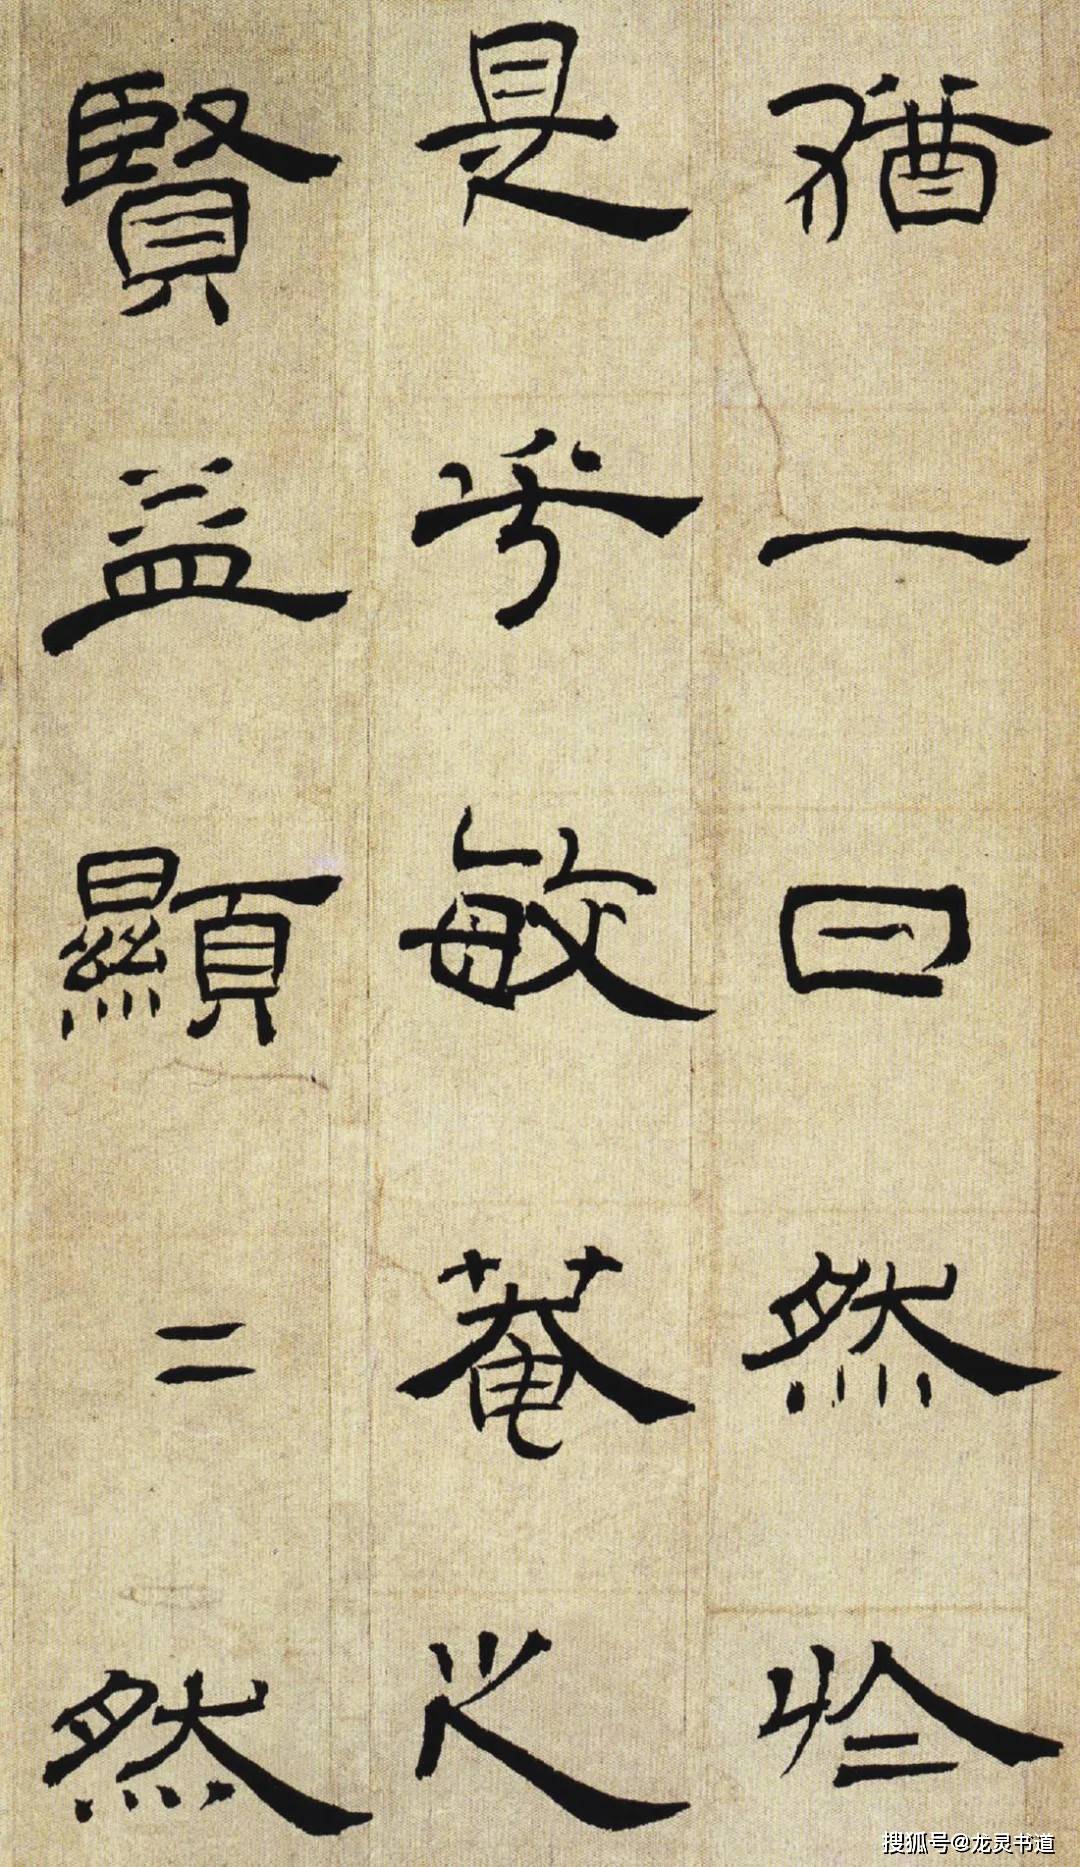 猶一日然於
是乎敏菴之
賢益顯二然
搜狐号@龙灵书道